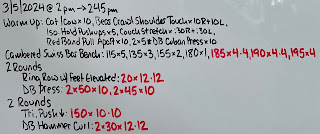 3/5/2024 @ 2pm → 245pm
Warm up: Cat/Cow x10, Bear Crawl Shoulder Touch x10R+10L,
Iso Hold Pushups x5, Couch Stretch x :30R+:30L,
Red Band Pull Apart x10, 2x5# DB Cuban Press x10
Cambered Swiss Bar Bench: 115x5, 135x3, 155x2, 180x1, 185x4·4, 190x4·4, 195x4
2 Rounds
Ring Row w/ Feet Elevated: 20x12·12
DB Press: 2x50x10, 2x45x10
2 Rounds
Tri. Push↓: 150x10·10
DB Hammer Curl: 2x30x12·12